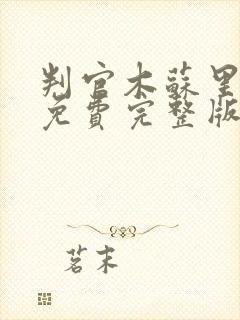 判官木蘇里
免費完整版
茗末